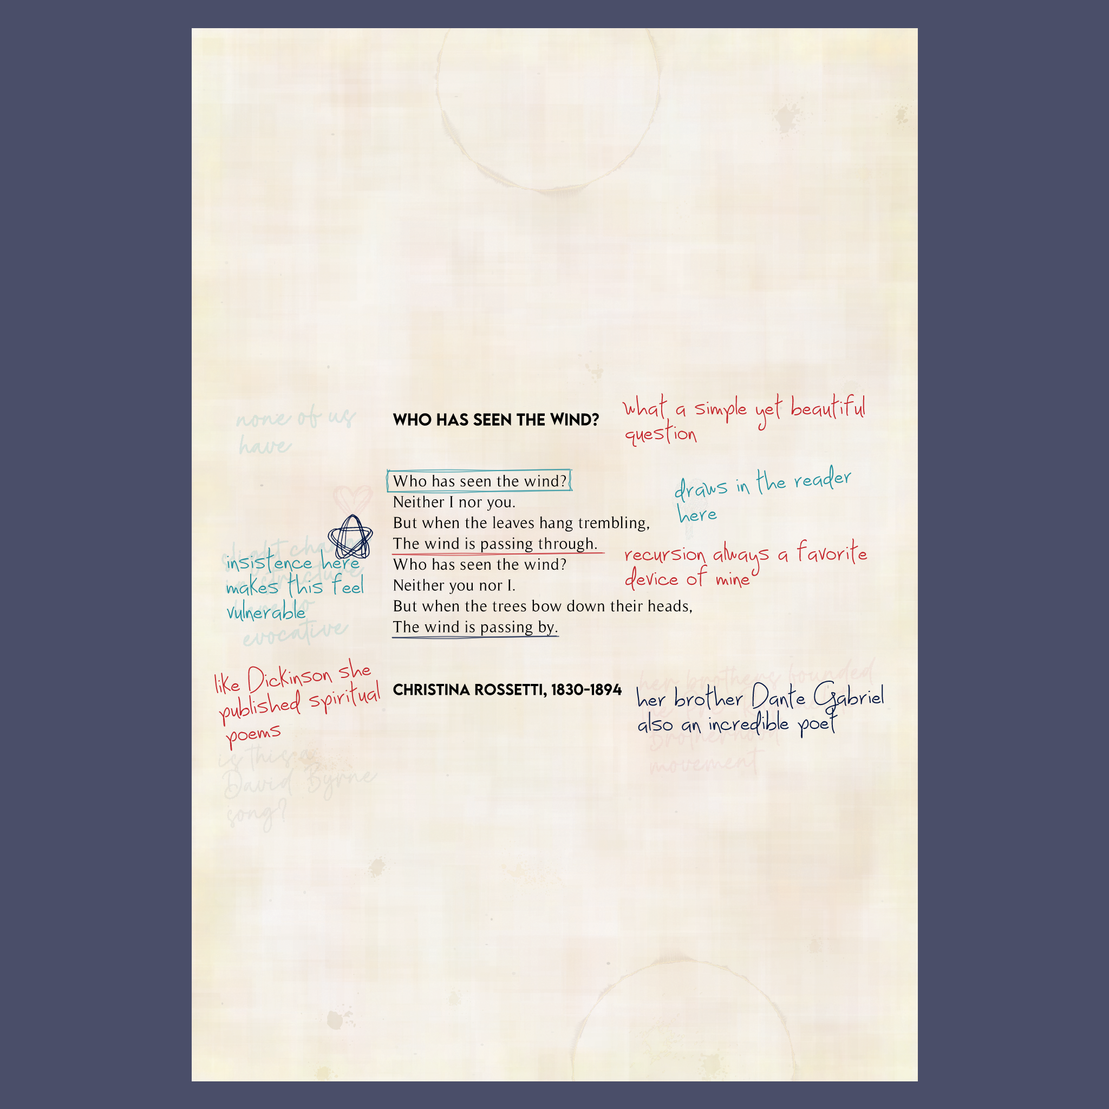 none of us
have
WHO HAS SEEN THE WIND?
what a simple yet beautiful
question
Who has seen the wind?
Neither I nor you.
But when the leaves hang trembling,
The wind is passing through.
Who has seen the wind?
Neither you nor I.
But when the trees bow down their heads,
The wind is passing by.
draws in the reader
here
recursion always a favorite
device of mine
insistence here
makes this feel
vulnerable
evocative
like Dickinson she
published spiritual
poems
CHRISTINA ROSSETTI, 1830-1894
her brothers founded
her brother Dante Gabriel
also an incredible poet
movement
is this a
David Byrne
song?